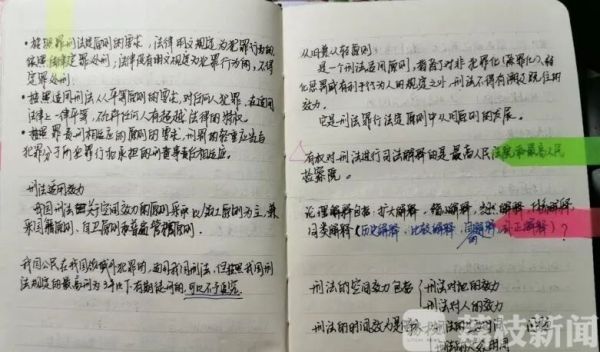 ·按照罪刑法定原则的要求，法律明文规定为犯罪行为的
依照法律定罪处刑；法律没有明文规定为犯罪行为的，不得
定罪处刑。
·按照适用刑法人人平等原则的要求，对任何人犯罪，在适用
法律上一律平等，不允许任何人有超越法律的特权。
·按照罪责刑相适应的原则的要求，刑罚的轻重应当与
犯罪分子所犯罪行和承担的刑事责任相适应。
刑法适用效力
我国刑法关于空间效力的原则采用以属地原则为主，兼
采国籍原则、自卫原则和普遍管辖原则。
我国公民在我国领域外犯罪的，适用我国刑法，但按照我国刑
法规定的最高刑为3年以下有期徒刑的，可以不予追究。
从旧兼从轻原则
是一个刑法适用原则，指除了对非犯罪化(除罪化)、轻
化思罚或有利于行为人的规定之外，刑法不得有溯及既往的
效力。
它是刑法罪行法定原则中从旧原则的发展。
有权对刑法进行司法解释的是最高人民法院和最高人民
检察院。
论理解释包括：扩大解释，缩小解释，当然解释，体系解释，
同类解释(历史解释，比较解释，目的解释，补正解释)？
刑法的空间效力包括
刑法对地的效力
刑法对人的效力
刑法的时间效力是
荔枝新闻